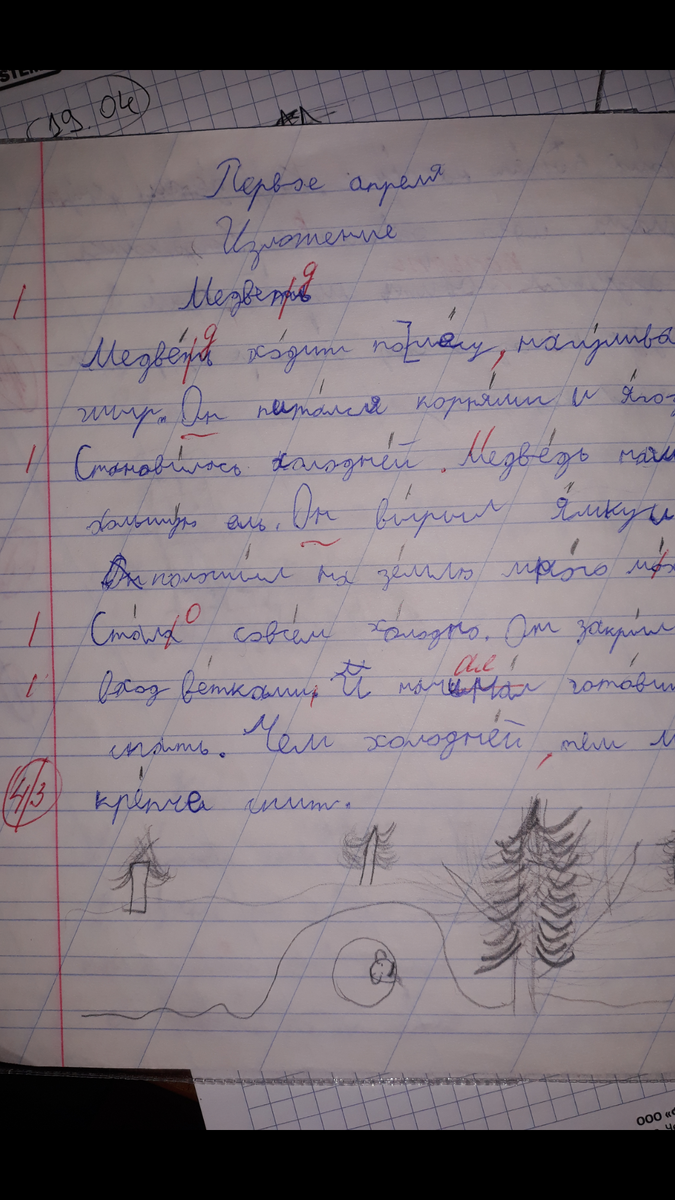 19.04
Первое апреля
Изложение
1 Медветь д
Медветь д ходит по лесу, нагулива
жир. Он питался корнями и яго
1 Становилось холодней. Медведь наш
большую ель. Он вырыл ямку и
положил на землю много
1 Стала о совсем холодно. Он закрыл
ал
1 вход ветками. И начинал готови
спать. Чем холодней, тем м
4/3 крепче спит.
ООО «